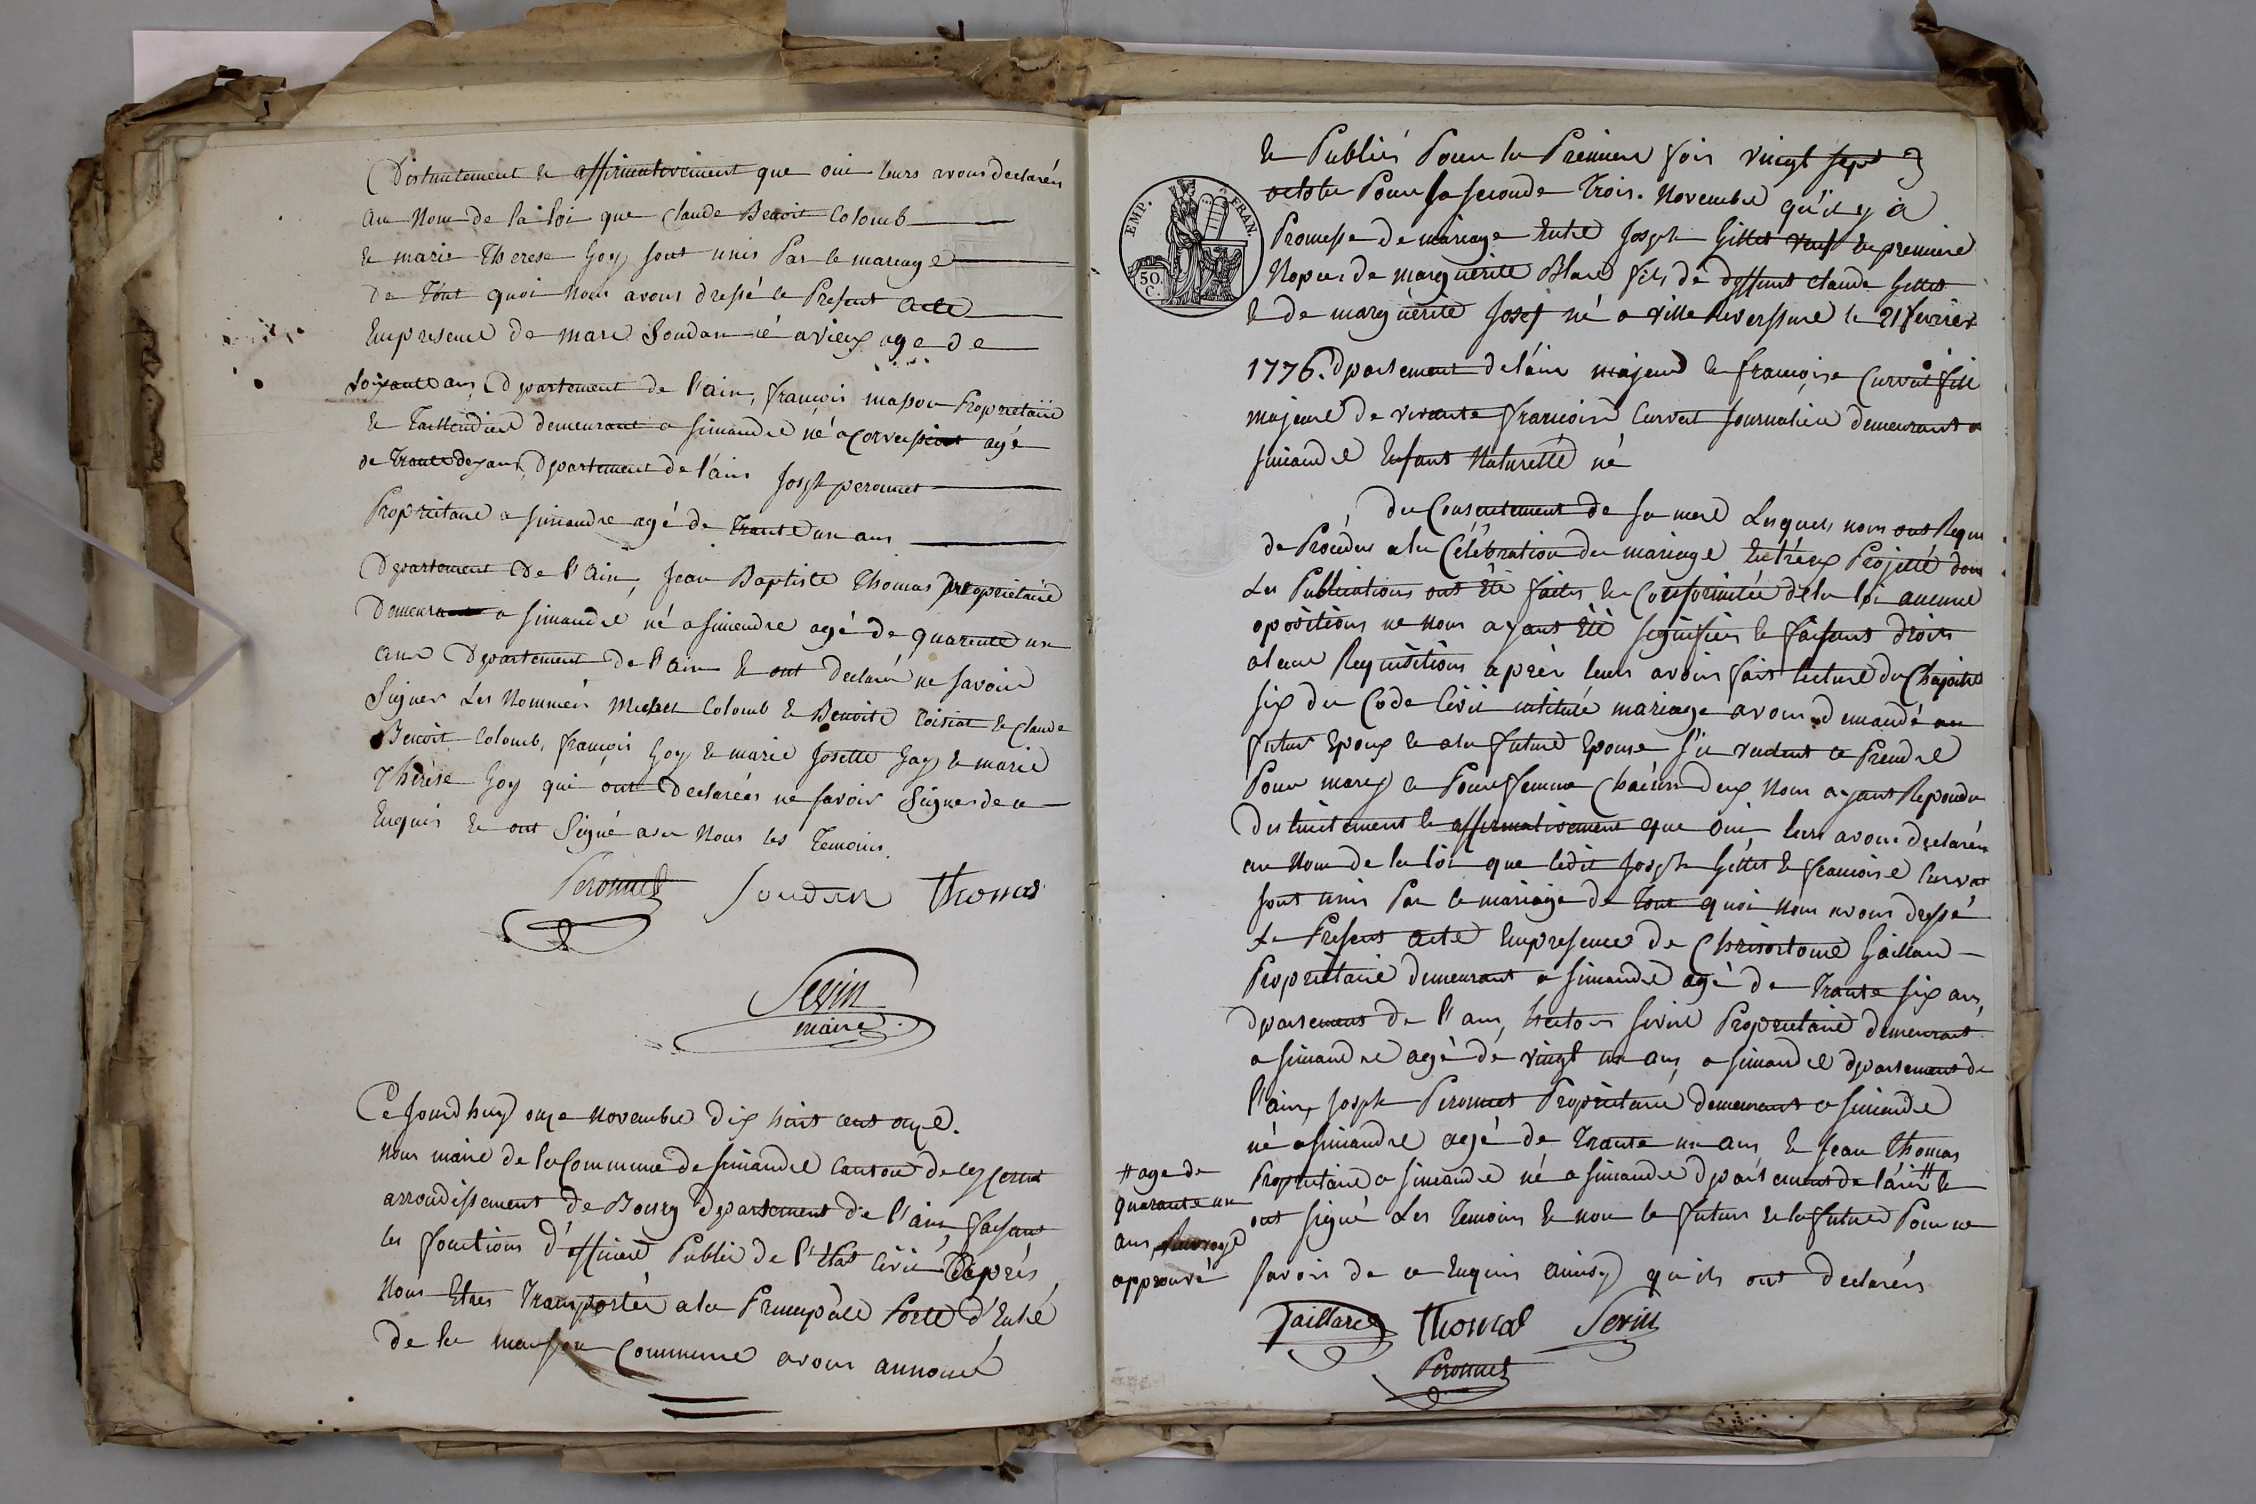 Distinctement et affirmativement que oui leurs avons declarés
au Nom de la loi que Claude Benoit Colomb
et marie Therese Goy sont unis Par le mariage
de Tout quoi Nous avons dressé le Present acte
En presence de marc Soudan né a vieux age de
soixante ans, Dpartement de l'ain, françois masson Proprietaire
et Taillendier demeurant a simandre né a Corvessiat agé
de Trante deux ans, Dpartement de l'ain Joseph peronnet
Proprietaire a simandre agé de Trante un ans
Dpartement De l'Ain, Jean Baptiste Thomas proprietaire
Demeurant a simandre né a simandre agé de quarente un
ans Dpartement De l'ain et ont declaré ne savoir
Signer Les Nommés Michel Colomb et Benoite Loisiat et Claude
Benoit Colomb, françois Goy et marie Josette Gay et marie
Thérèse Goy qui ont Declarées ne savoir Signer de ce
Enquis et ont Signé avec Nous les Temoins.
Peronnet Soudan Thomas
Sevin
maire
Ce Jourdhuy onze novembre dix huit cent onze.
Nous maire de la Commune de simandre Canton de Ceyzeriat
arrondissement de Bourg Dpartement de l'ain, faisant
les fonctions d'officier Public de l'Etat Civil Daprés
Nous Etres Transportés a la Principale Porte d'Entré
de la maison Commune avons annoncé
EMP. FRAN.
50.
C.
et Publiés Pour la Premiere fois vingt sept
octobre Pour la seconde Trois. Novembre qu'il y a
Promesse de mariage Entre Joseph Gillet veuf En premiere
Nopces de marguerite Blanc fils de deffunt Claude Gillet
et de marguérite Josef né a ville Reverssure le 21 fevrier
1776. Dpartement de l'ain majeur et françoise Curvat fille
majeure de vivante françoise Curvat Journaliere demeurant a
simandre Enfant Naturelle né
du Consentement de sa mere Lesquels nous ont Requis
de Procéder a la Célébration du mariage Entr'eux Projetté dont
Les Publications ont été faites En Conformitée de la loi aucune
opositions ne nous ayant été signifiées et faisant droit
a leur Requisitions aprés leurs avoir fait lecture du Chapitre
six du Code Civil intitulé mariage avons demandé au
futur Epoux et a la future Epouse s'il veulent ce Prendre
Pour mary et Pour femme Chacun deux Nous ayant Repondu
distinctement et affirmativement que oui, leurs avons declarés
au Nom de la loi que ledit Joseph Gillet et françoise Curvat
sont unis Par le mariage de Tout quoi Nous avons dressé
Le Present acte En presence de Chrisortome Gaillard
Proprietaire demeurant a simandre agé de Trante six ans,
Dpartement de l'ain, hector sevin Proprietaire demeurant
a simandre agé de vingt un ans, a simandre dpartement de
l'ain, Joseph Peronnet Proprietaire demeurant a simandre
né a simandre agé de Trante un ans, et Jean Thomas
Proprietaire a simandre né a simandre dpartement de l'ain # et
ont signé Les Temoins et nous le futur et la future Pour ne
savoir de ce Enquis Ainsy qu'ils ont declarés
# age de
quarante un
ans
approuvé
Gaillard Thomas Sevin
Peronnet